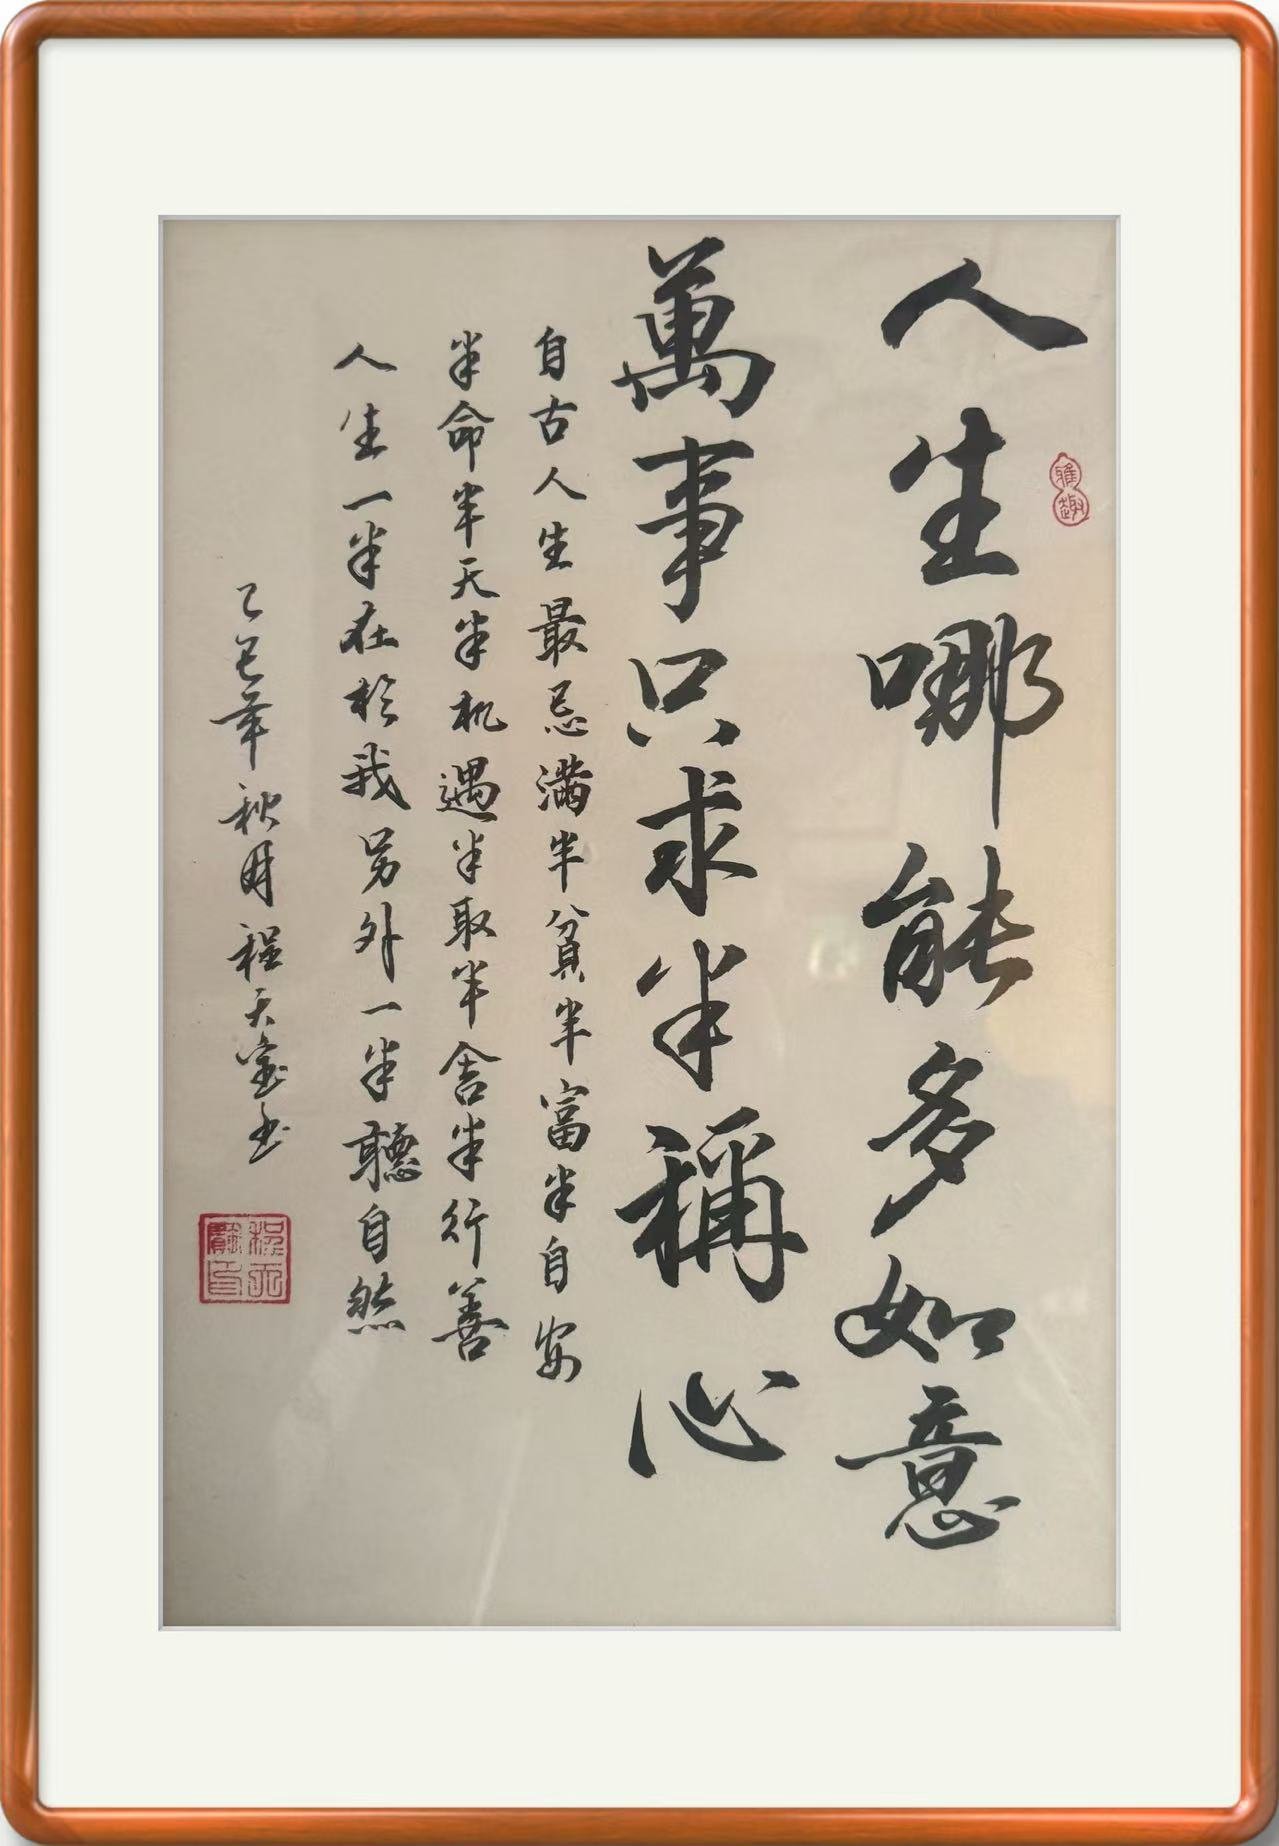 人生哪能多如意
萬事只求半稱心
自古人生最忌滿半貧半富半自安
半命半天半机遇半取半舍半行善
人生一半在於我另外一半聽自然
乙巳年秋月程天寶书
雅趣
程天寶印